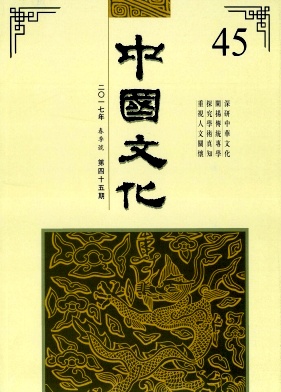 45
中國文化
深研中華文化
闡揚傳統專學
探究學術真知
重視人文關懷
二〇一七年 春季號 第四十五期